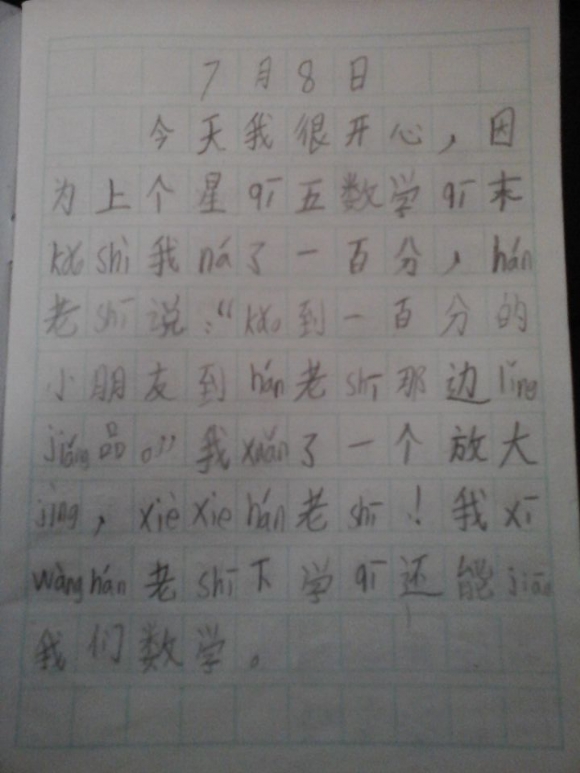 7月8日
今天我很开心，因
为上个星qī五数学qī末
kǎo shì我ná了一百分，hán
老shī说：“kǎo到一百分的
小朋友到hán老shī那边lǐng
jiǎng品。”我xuǎn了一个放大
jìng，xiè xie hán老shī！我xī
wàng hán老shī下学qī还能jiāo
我们数学。